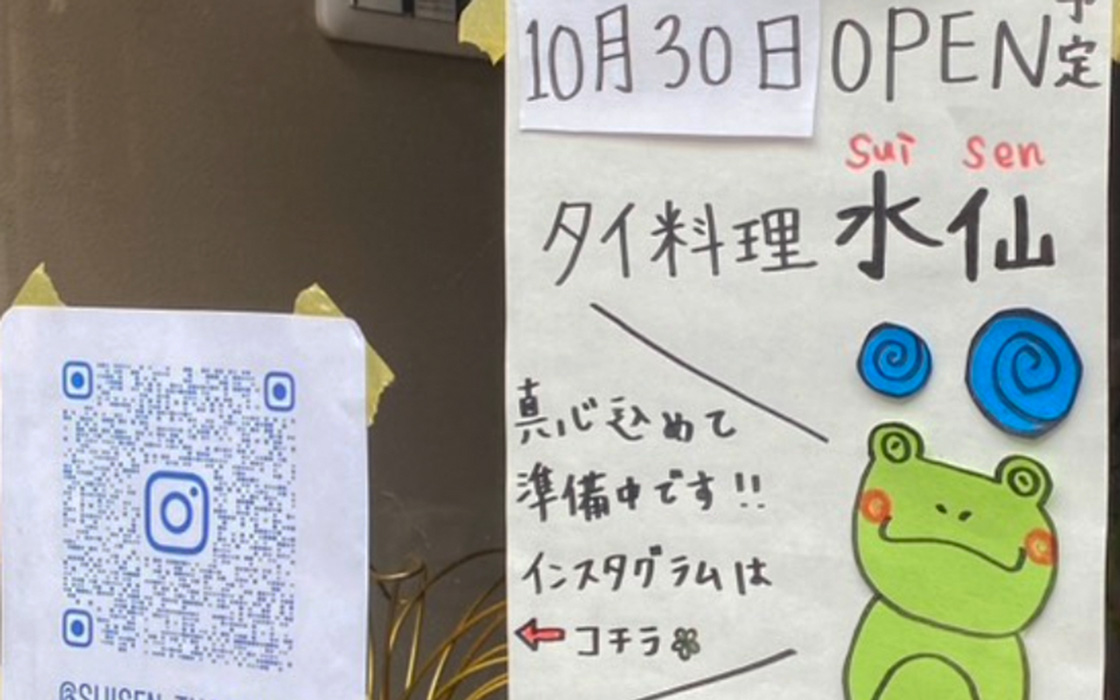 10月30日OPEN予定
sui sen
タイ料理 水仙
真心込めて
準備中です!!
インスタグラムは
←コチラ